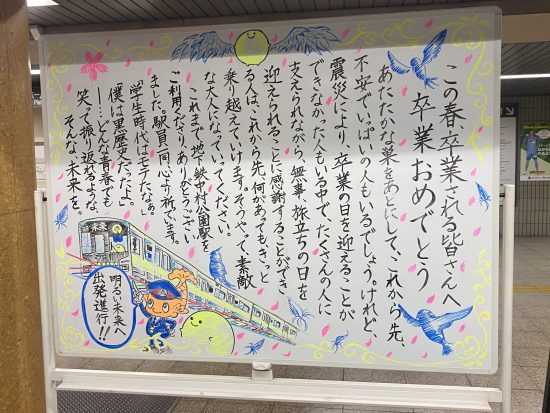 この春卒業される皆さんへ
卒業おめでとう
あたたかな巣をあとにして、これから先、
不安でいっぱいの人もいるでしょう。けれど、
震災により、卒業の日を迎えることが
できなかった人もいる中で、たくさんの人に
支えられながら、無事、旅立ちの日を
迎えられることに感謝することができ
る人は、これから先、何があってもきっと
乗り越えていけます。そうやって、素敵
な大人になっていってください。
これまで地下鉄中村公園駅を
ご利用くださり、ありがとうござい
ました。駅員一同心より祈ってます。
「学生時代はモテたな。」
「僕は黒歴史だったよ。」
――…どんな青春でも
笑って振り返れるような
そんな未来を。
未来
明るい未来へ
出発進行!!